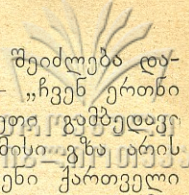 შეიძლება და-
„ჩვენ ერთნი
ეთი გამბედავი
მისი გზა არის
ენი ქართველი